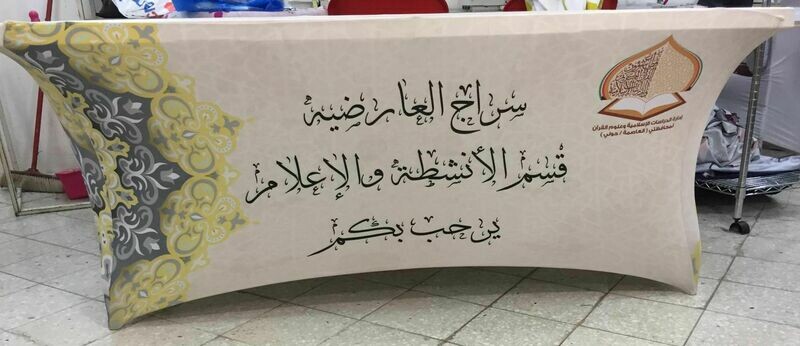 سراج العارضية
قسم الأنشطة والإعلام
يرحب بكم
إدارة الدراسات الإسلامية وعلوم القرآن
لمحافظتي ( العاصمة / حولي )